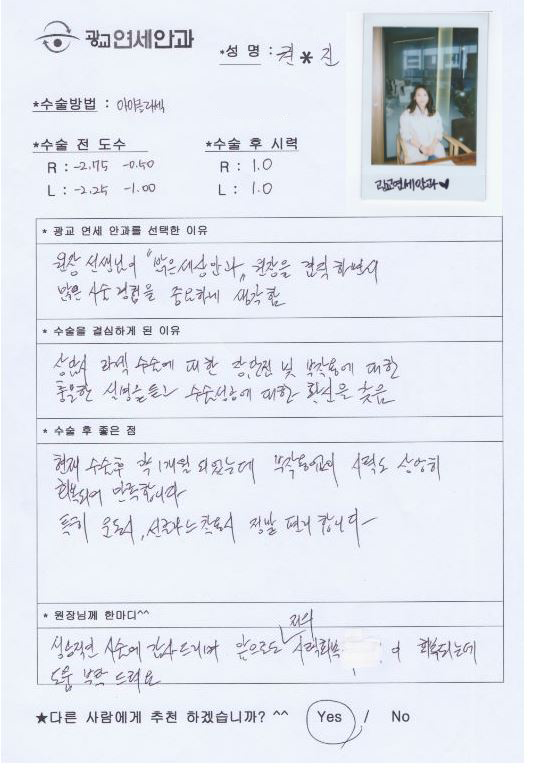 광교연세안과
*성 명 : 권*진
*수술방법 : 아이블라섹
*수술 전 도수
R : -2.75 -0.50
L : -2.25 -1.00
*수술 후 시력
R : 1.0
L : 1.0
광교연세안과♥
* 광교 연세 안과를 선택한 이유
원장 선생님이 "밝은세상안과" 원장을 역하면서
많은 수술 경험을 중요하게 생각함
* 수술을 결심하게 된 이유
라섹 수술에 대한 장,단점 및 부작용에 대한
설명을 듣고 수술성공에 대한 확신을 찾음
* 수술 후 좋은 점
현재 수술후 약 1개월 되었는데 부작용없이 시력도 상당히
회복되어 만족합니다
특히 운동시, 선글라스 착용시 정말 편리합니다
* 원장님께 한마디^^
성공적인 수술에 감사드리며 앞으로도 저의 시력회복 이 회복되는데
도움 부탁 드려요
★다른 사람에게 추천 하겠습니까? ^^ Yes / No